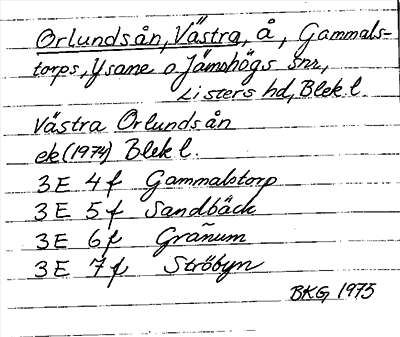 Orlundsån, Västra, å, Gammals-
torps, Ysane o Jämshögs snr,
Listers hd, Blek l.
Västra Orlundsån
ek (1974) Blek l.
3E 4f Gammalstorp
3E 5f Sandbäck
3E 6f Granum
3E 7f Ströbyn
BKG 1975